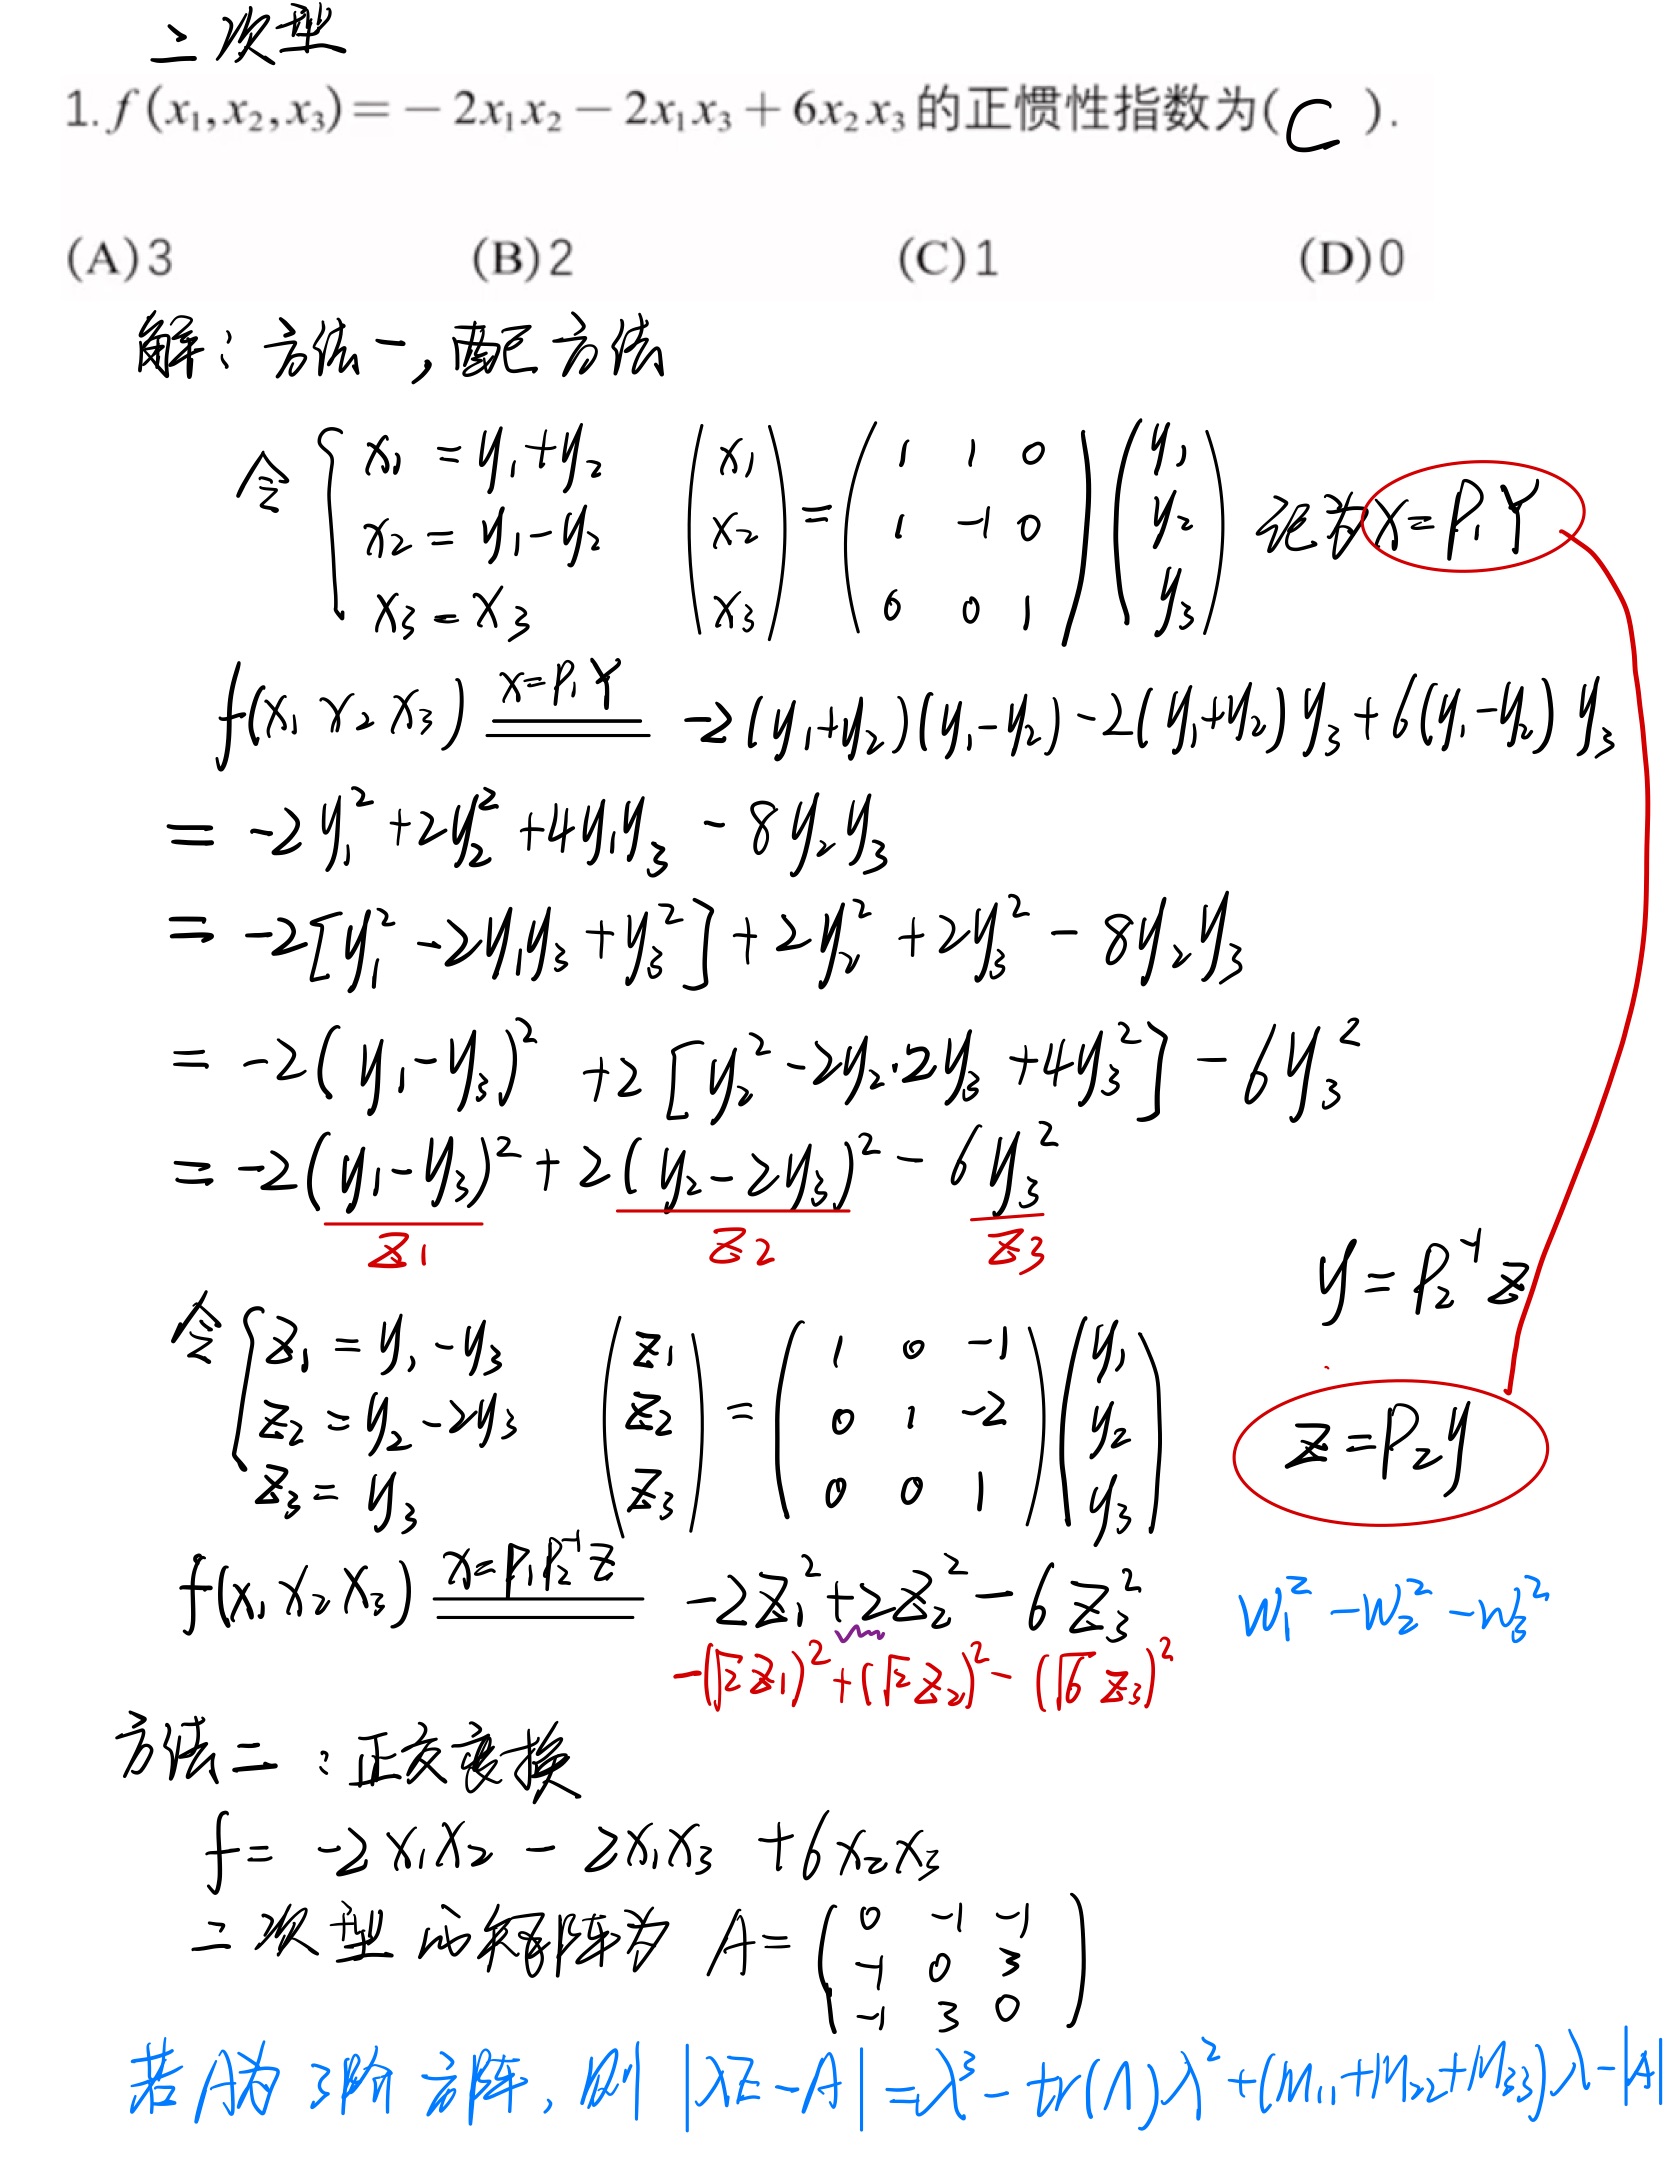 二次型
1. f(x₁,x₂,x₃)=－2x₁x₂－2x₁x₃＋6x₂x₃的正惯性指数为( C ).
(A)3 (B)2 (C)1 (D)0
解：方法一，配方法
令 { x₁ = y₁+y₂ x₂ = y₁-y₂ x₃ = x₃ (x₁ x₂ x₃) = (1 1 0 1 -1 0 0 0 1) (y₁ y₂ y₃) 记为 x=P₁Y
f(x₁ x₂ x₃) x=P₁Y -2(y₁+y₂)(y₁-y₂)-2(y₁+y₂)y₃+6(y₁-y₂)y₃
= -2y₁²+2y₂²+4y₁y₃-8y₂y₃
= -2[y₁²-2y₁y₃+y₃²]+2y₂²+2y₃²-8y₂y₃
= -2(y₁-y₃)²+2[y₂²-2y₂·2y₃+4y₃²]-6y₃²
= -2(y₁-y₃)²+2(y₂-2y₃)²-6y₃²
z₁ z₂ z₃
y=P₂⁻¹z
令 { z₁ = y₁-y₃ z₂ = y₂-2y₃ z₃ = y₃ (z₁ z₂ z₃) = (1 0 -1 0 1 -2 0 0 1) (y₁ y₂ y₃) z=P₂y
f(x₁ x₂ x₃) x=P₁P₂⁻¹z -2z₁²+2z₂²-6z₃² w₁²-w₂²-w₃²
-(√2z₁)²+(√2z₂)²-(√6z₃)²
方法二：正交变换
f= -2x₁x₂-2x₁x₃+6x₂x₃
二次型的矩阵为 A= (0 -1 -1 -1 0 3 -1 3 0)
若A为3阶方阵，则 |λE-A|=λ³-tr(A)λ²+(M₁₁+M₂₂+M₃₃)λ-|A|